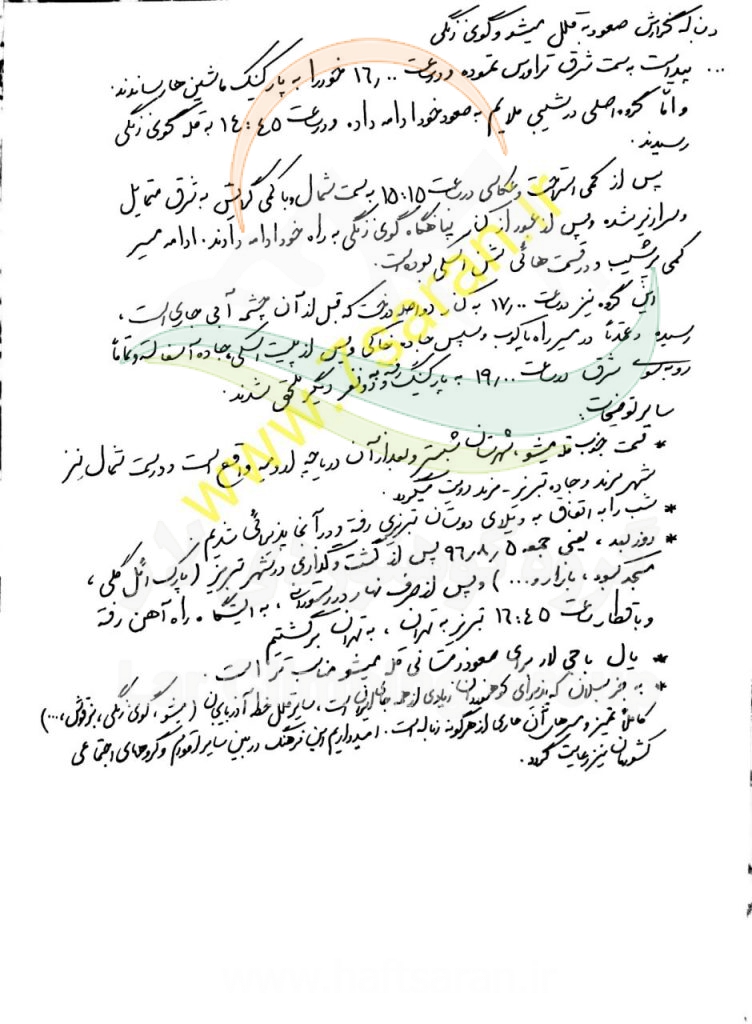 دنباله گزارش صعود به قلل میشو و گوی زنگی
... پیداست به سمت شرق تراورس نموده و در ساعت ۱۶٫۰۰ خود را به پارکینگ ماشین ها رساندند.
و امّا گروه اصلی در شیبی ملایم به صعود خود ادامه داده و در ساعت ۱۴:۴۵ به قله گوی زنگی
رسیدند.
پس از کمی استراحت و عکاسی در ساعت ۱۵:۱۵ به سمت شمال و با کمی گرایش به شرق متمایل
و سرازیر شده و پس از عبور از کنار پناهگاه گوی زنگی به راه خود ادامه دادند. ادامه مسیر
کمی پرشیب و در قسمت هائی شن اسکی بوده است.
این گروه نیز در ساعت ۱۷٫۰۰ به کنار دو اصله درخت که قبل از آن چشمه آبی جاری است،
رسیده و عمدتاً در مسیر راه پاکوب و سپس جاده خاکی و پس از پیست اسکی، جاده آسفالته و تماماً
رو بسوی شرق در ساعت ۱۹٫۰۰ به پارکینگ رفته و به دو نفر دیگر ملحق شدند.
سایر توضیحات:
* قسمت جنوب قله میشو، شهرستان شبستر و بعد از آن دریاچه ارومیه واقع است و در سمت شمال نیز
شهر مرند و جاده تبریز - مرند رویت میگردد.
* شب را به اتفاق به ویلای دوستان تبریزی رفته و در آنجا پذیرائی شدیم.
* روز بعد، یعنی جمعه ۹۶٫۸٫۵ پس از گشت و گذاری در شهر تبریز (پارک ائل گلی،
مسجد کبود، بازار و...) و پس از صرف نهار در رستوران، به ایستگاه راه آهن رفته
و با قطار ساعت ۱۶:۴۵ تبریز به تهران، به تهران برگشتیم
* یال باجی لار برای صعود زمستانی قله میشو مناسب تر است.
* به جز سبلان که پذیرای کوهنوردان زیادی از همه جای ایران است، سایر قلل خطه آذربایجان (میشو، گوی زنگی، بزقوش، ...)
کاملاً تمیز و مسیرهای آن عاری از هرگونه زباله است. امیدواریم این فرهنگ در بین سایر اقوام و گروههای اجتماعی
کشورمان نیز رعایت گردد.
www.7saran.ir
www.haftsaran.ir